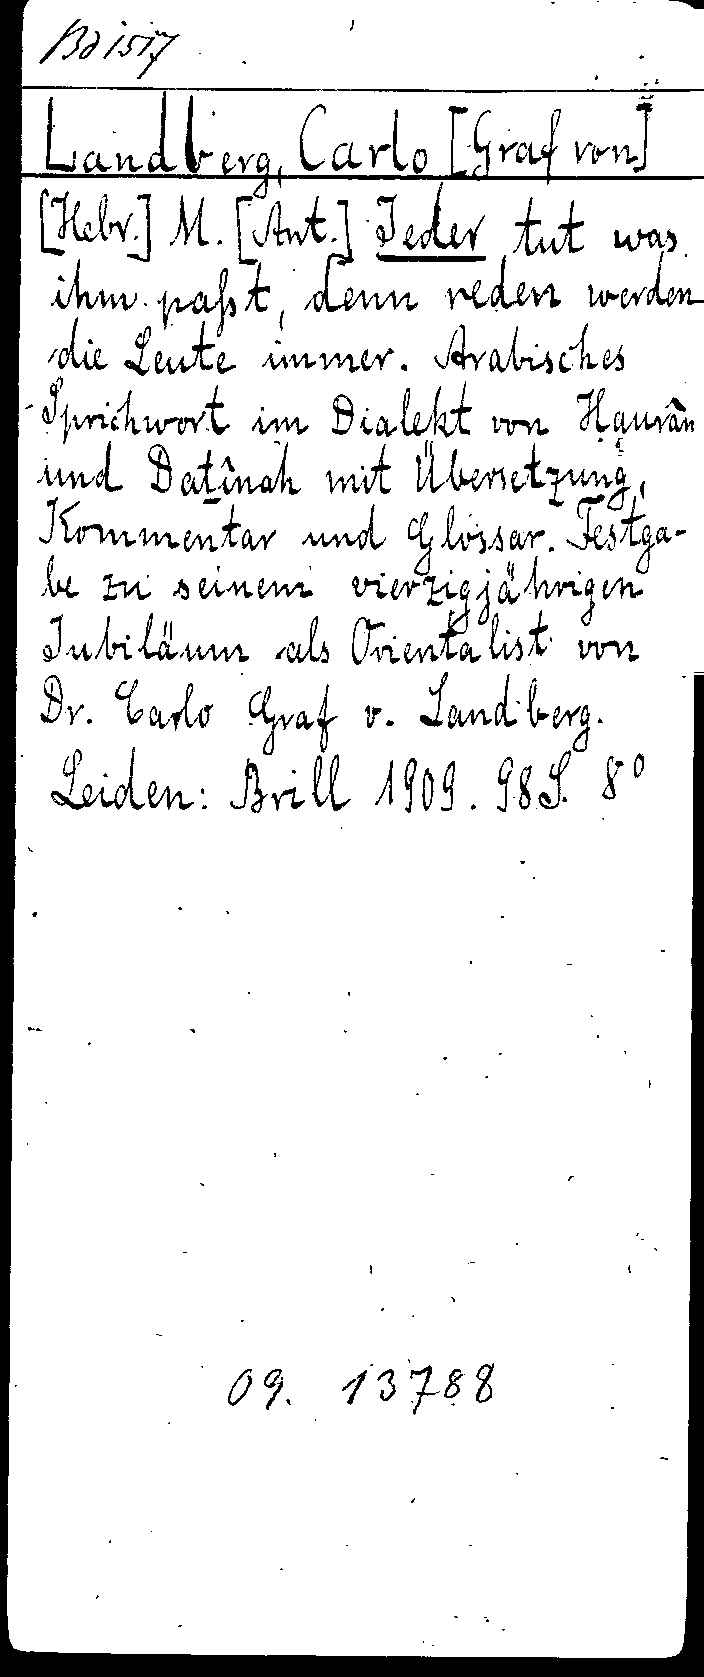 Bd 1517
Landberg, Carlo [Graf von]
[Hebr.] M. [Ant.] Jeder tut was
ihm paßt, denn reden werden
die Leute immer. Arabisches
Sprichwort im Dialekt von Ḥaurân
und Daṯînah mit Übersetzung,
Kommentar und Glossar. Festga-
be zu seinem vierzigjährigen
Jubiläum als Orientalist von
Dr. Carlo Graf v. Landberg.
Leiden: Brill 1909. 98 S. 8°
09. 13788